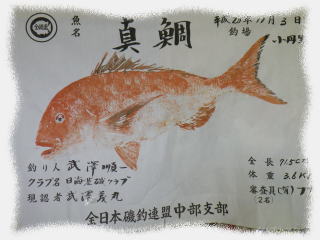 魚名
真鯛
平成20年11月3日
釣場
釣り人 武澤順一
クラブ名 日海荘磯クラブ
現認者 武澤義丸
全長
体重 3.8K
審査員(資)
(2名)
全日本磯釣連盟中部支部